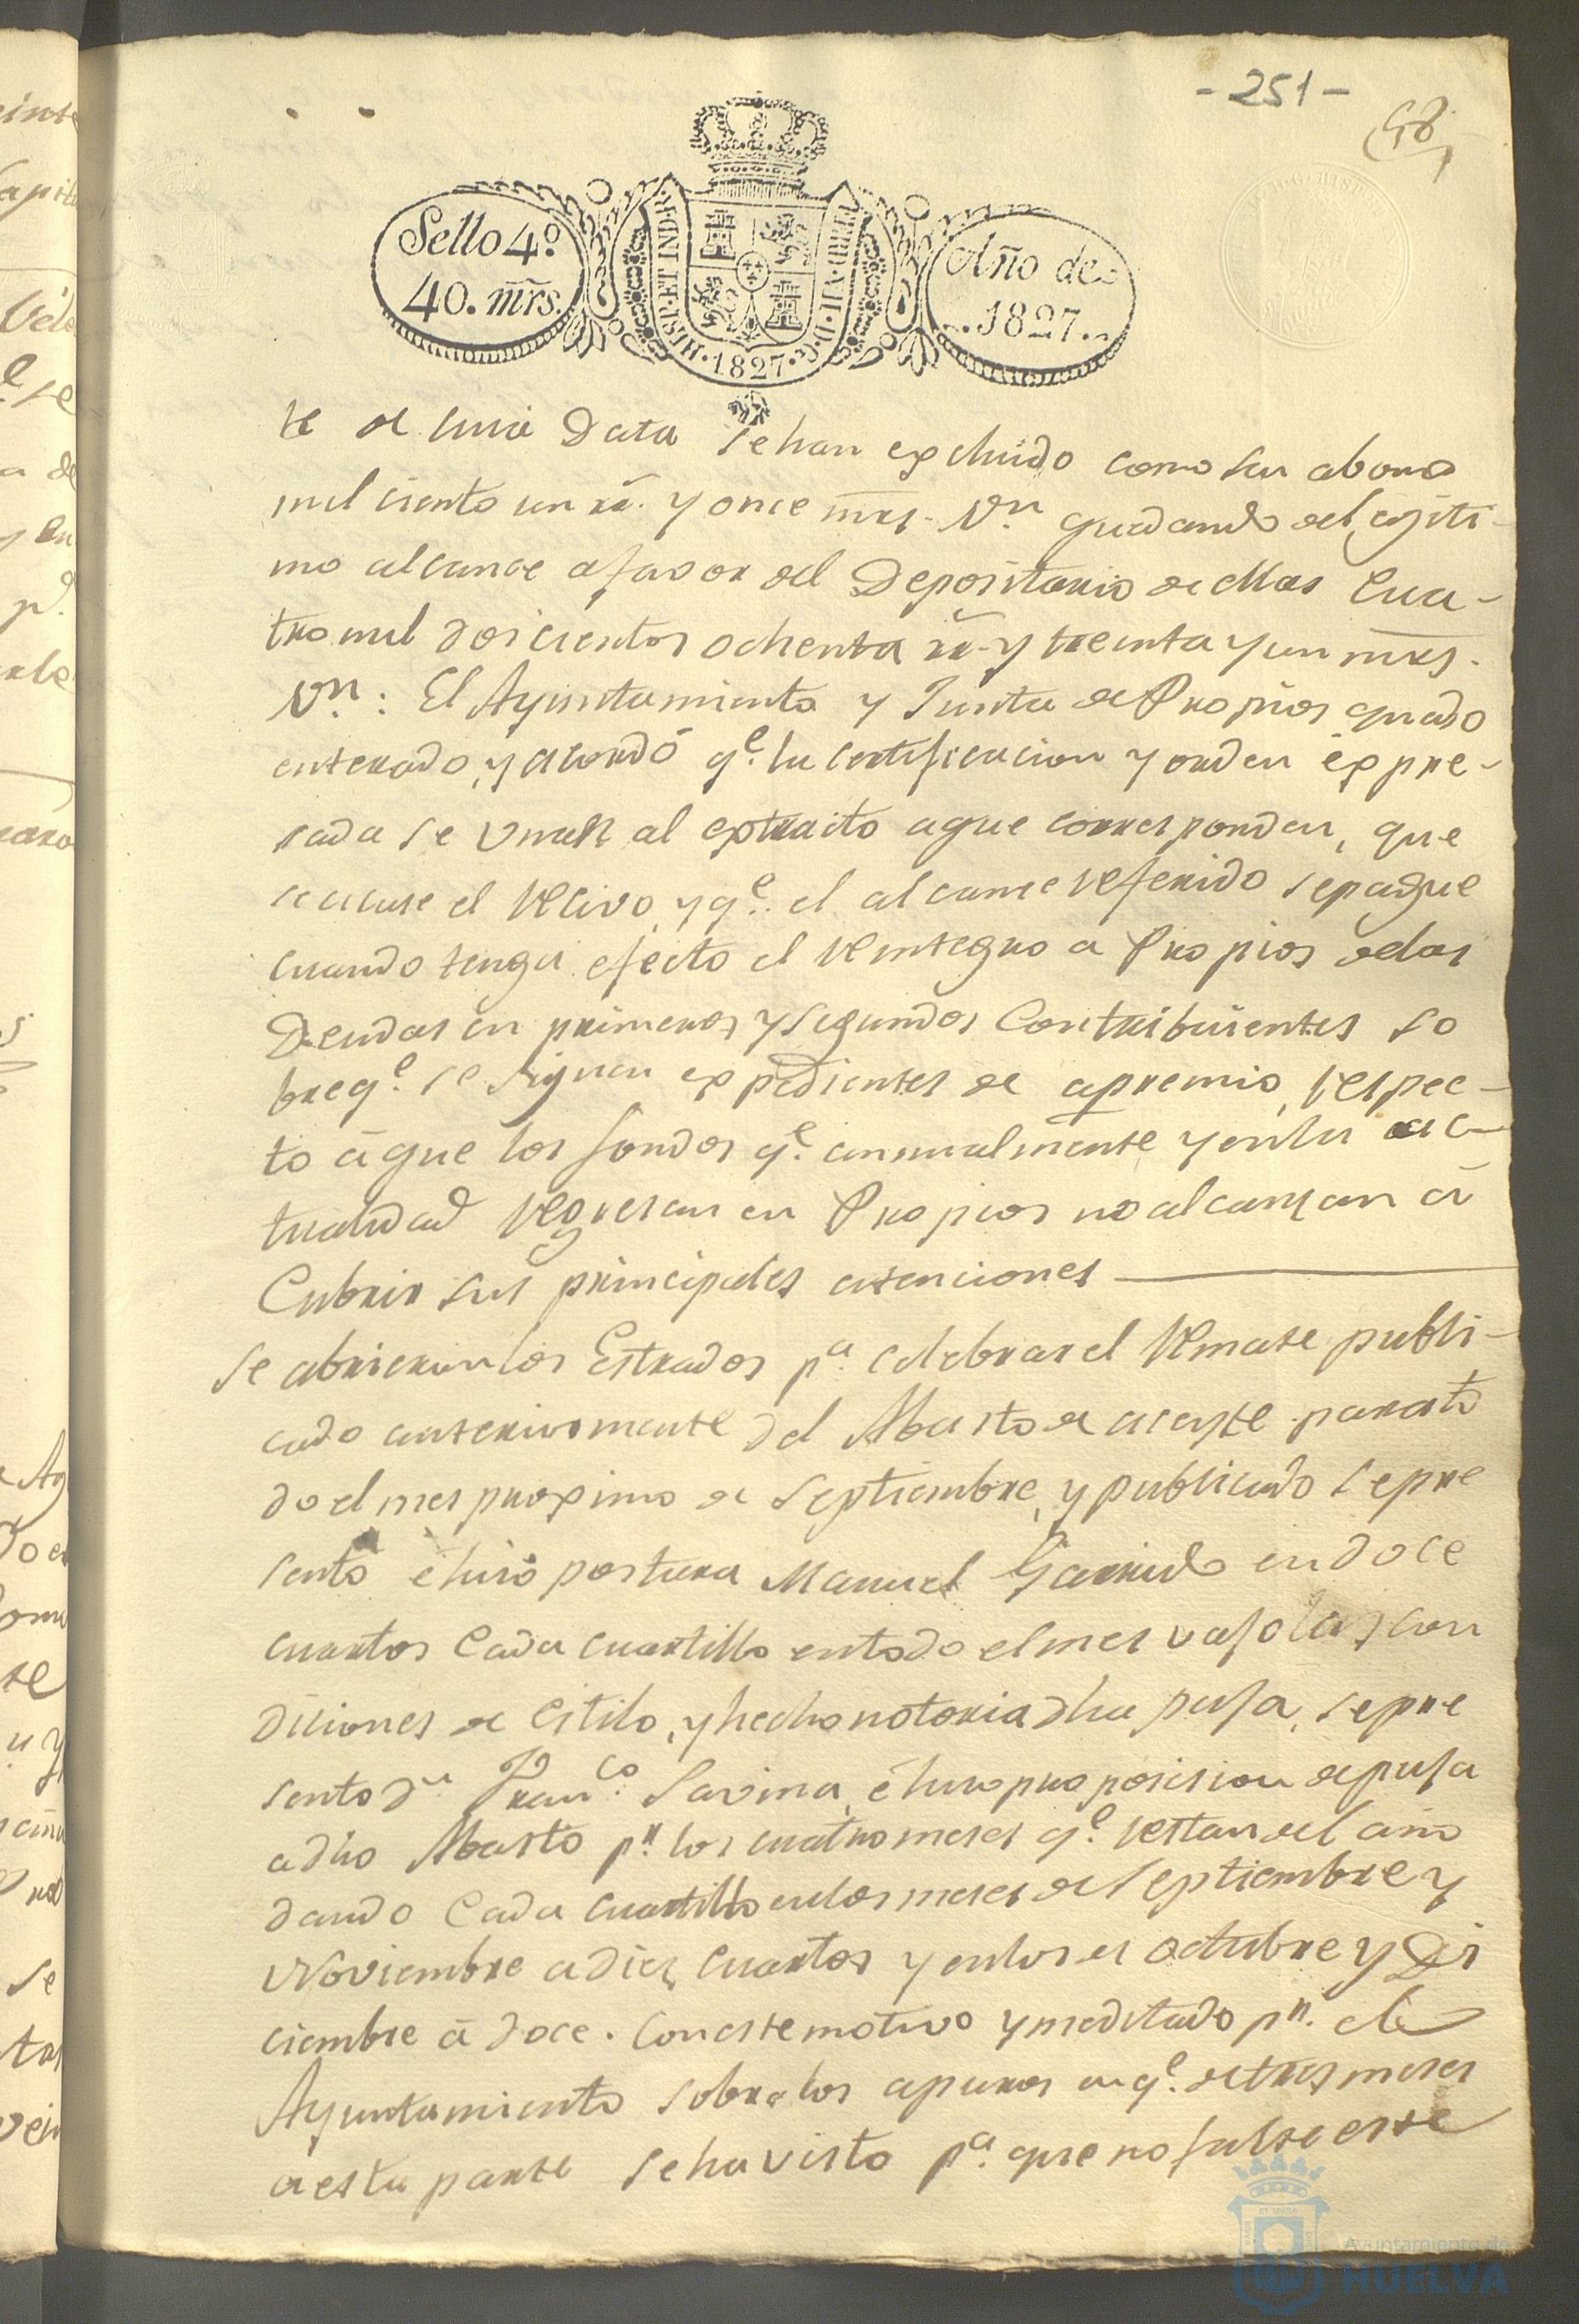 - 251 -
58
Sello 4º.
40. mrs.
HISP. ET IND. R.
FERD. VII. D. G.
1827.
Año de
1827.
te de cuia Data se han excluido como sin abono
mil ciento un rr. y once mrs. Vn. quedando de legiti-
mo alcance afavor del Depositario de ellos Cua-
tro mil doscientos ochenta rr. y treinta y un mrs.
Vn.: El Ayuntamiento y Junta de Propios quedo
enterado, y acordó qe. la certificacion y orden expre-
sada se unan al extracto aque corresponden, que
se acuse el recivo, y qe. el alcance referido se pague
cuando tenga efecto el reintegro a Propios delas
Deudas en primeros y segundos Contribuientes so
breqe. se siguen expedientes de apremio, respec-
to áque los fondos qe. annualmente y enla ac-
tualidad regresan en Propios no alcanzan á
Cubrir sus principales atenciones
Se abrieron los Estrados pa. celebrar el remate publi-
cado anteriormente del Abasto de aceyte para to
do el mes proximo de Septiembre, y publicado se pre
sentó é hizo postura Manuel Garrido en doce
cuartos cada cuartillo entodo elmes vajo las con
diciones de estilo, y hecho notoria dha puja, se pre
sento Dn. Franco. Savina, é hizo proposicion de puja
a dho Abasto pr. los cuatro meses qe. restan del año
dando cada cuartillo enlos meses de Septiembre y
Noviembre a diez cuartos y enlos de Octubre y Di
ciembre á doce. Con este motivo y meditado pr. el
Ayuntamiento sobre los apuros en qe. de tres meses
a esta parte se ha visto pa. que no falte este
Ayuntamiento de
HUELVA